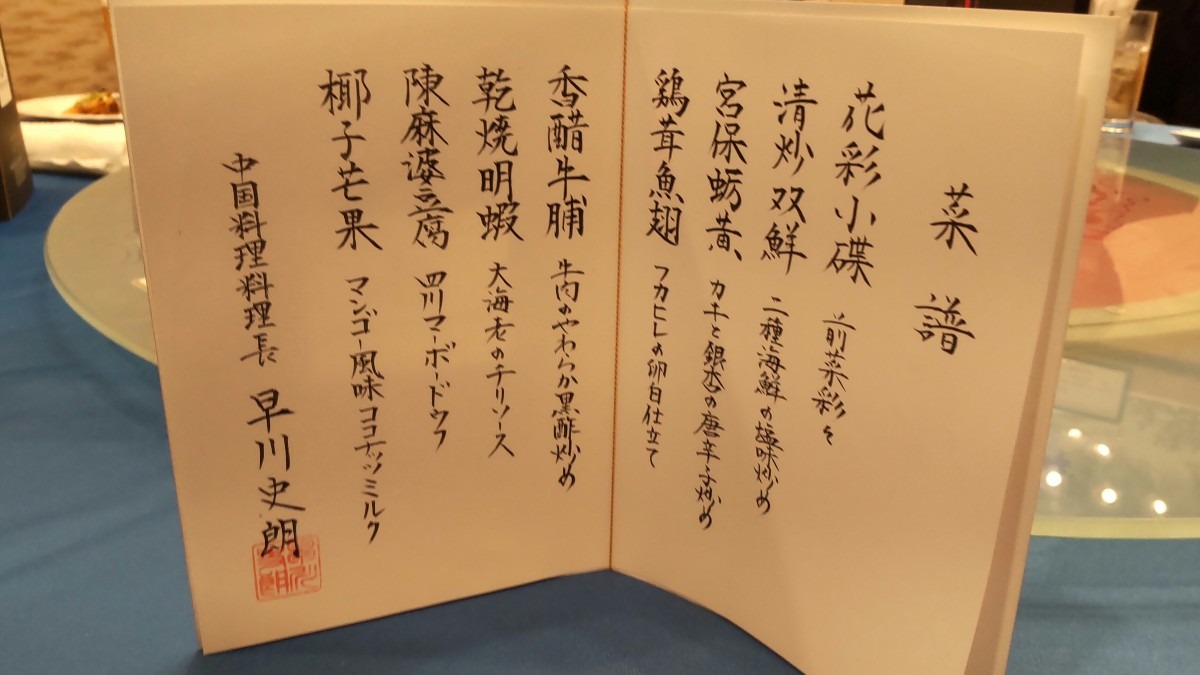 菜譜
花彩小碟 前菜彩々
清炒双鮮 二種海鮮の塩味炒め
宮保蛎黄 カキと銀杏の唐辛子炒め
鶏茸魚翅 フカヒレの卵白仕立て
香醋牛脯 牛肉のやわらか黒酢炒め
乾焼明蝦 大海老のチリソース
陳麻婆豆腐 四川マーボードウフ
椰子芒果 マンゴー風味ココナッツミルク
中国料理料理長 早川史朗